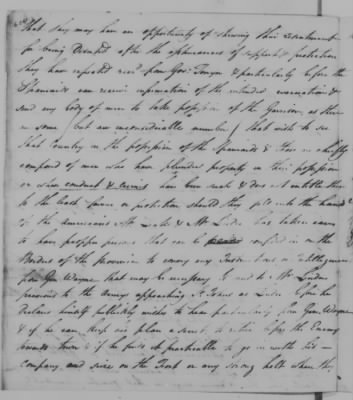 that they may have an opportunity of shewing their resentment
for being Deserted after the appearances of support & protection
they have repeated recd from Govr Tonyn & particularly before the
Spaniards can receive information of the intended evacuation &
send any body of men to take possession of the Garrison, as there
is some but an inconsiderable number that wish to see
that Country in the possession of the Spaniards & these is chiefly
composed of men who have plunder property in their possession
or whose conduct & have been such & does not entitle them
to the least favor or protection should they fall into the hands
of the americans Mr & Mr has taken care
to have proper persons that can be confided in on the
Borders of the Province to convey any Instructions or intelligence
from Genl Wayne that may be necessary to send to Mr
previous to the army approaching St as he
Declares himself publickly wishes to hear from Genl Wayne
& if he can keep our plan a secret, to before the Enemy
town & if he finds it practicable to go in with his
company and seize on the Fort or any strong hold when the